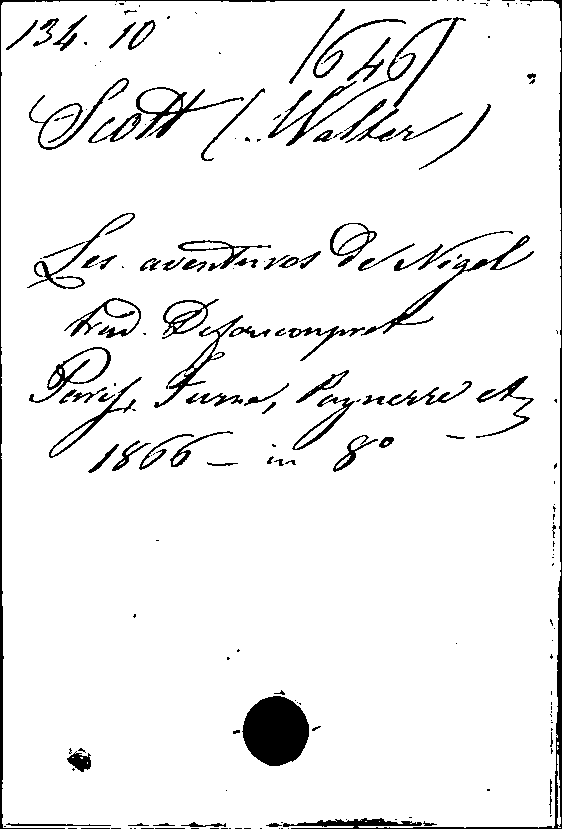 134. 10
1646
Scott (Walter)
Les aventures de Nigel
trad. Defauconpret
Paris, Furne, Pagnerre et
1866 — in 8°